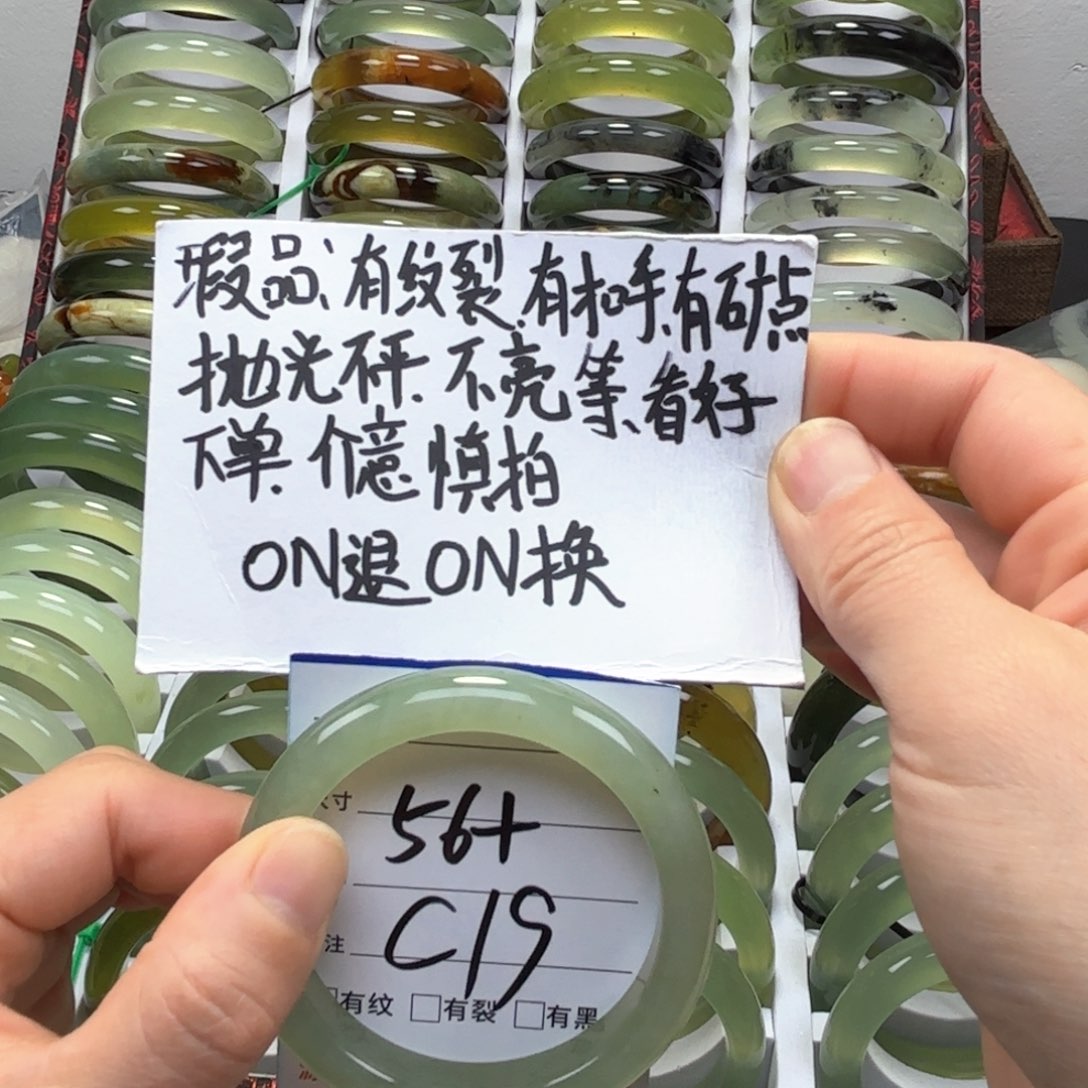 瑕品、有纹裂.有扣手、有矿点
抛光不平.不亮等、看好
下单.介意慎拍
ON退ON换
寸
56+
C19
注
有纹 □有裂 □有黑